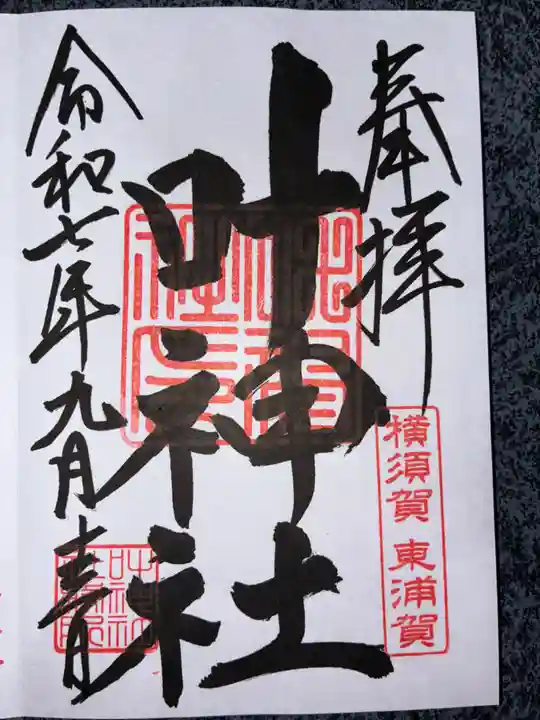 奉拝
横須賀 東浦賀
叶神社
令和七年九月吉日